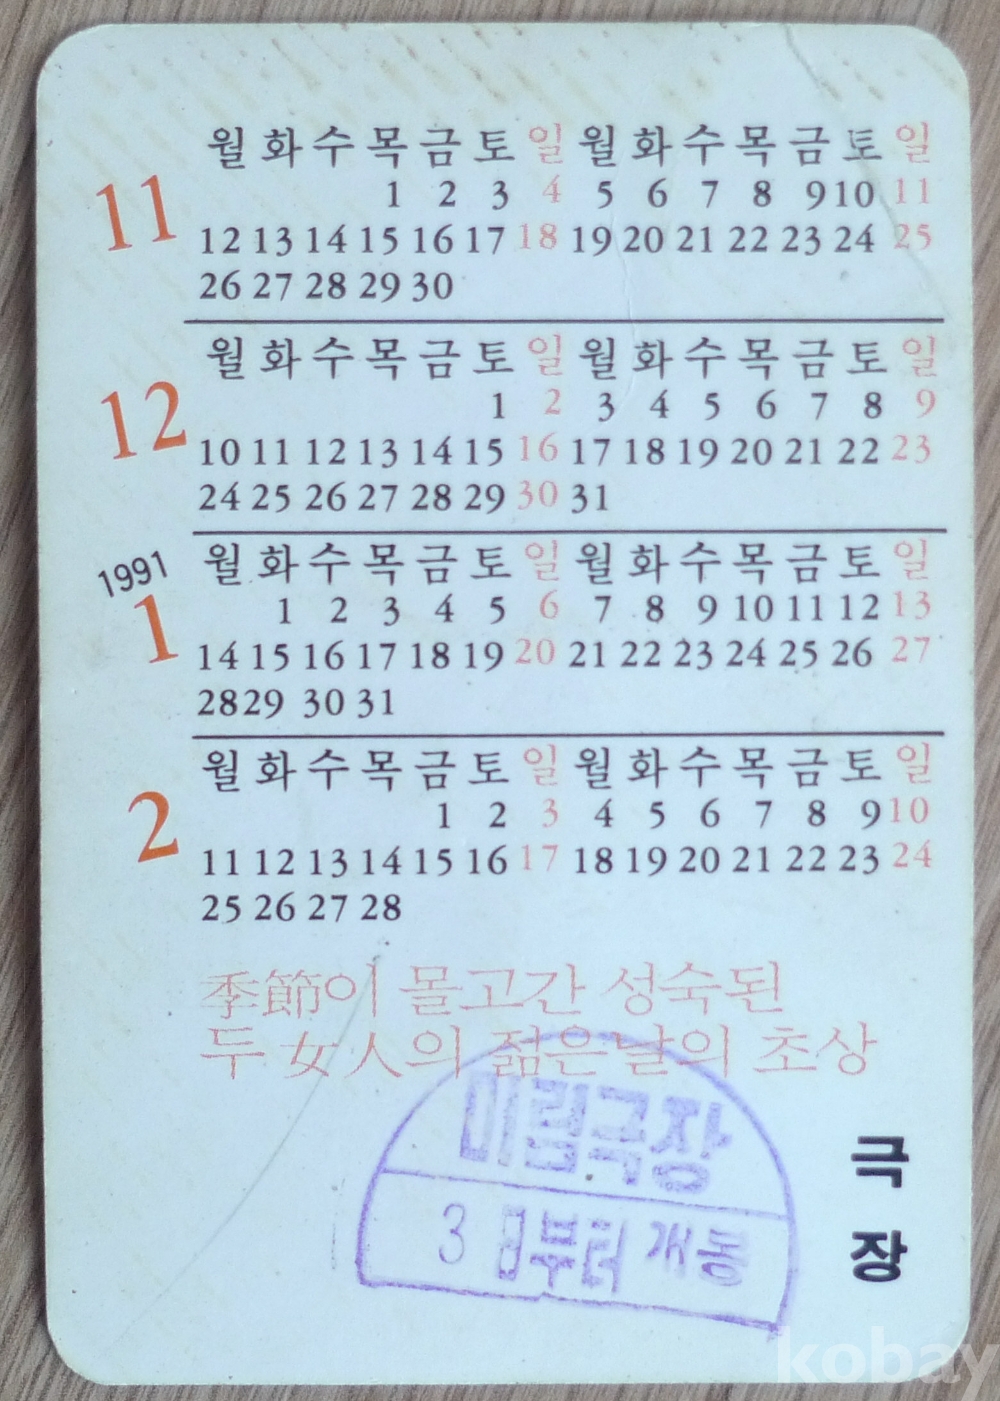 11
월 화 수 목 금 토 일 월 화 수 목 금 토 일
1 2 3 4 5 6 7 8 9 10 11
12 13 14 15 16 17 18 19 20 21 22 23 24 25
26 27 28 29 30
12
월 화 수 목 금 토 일 월 화 수 목 금 토 일
1 2 3 4 5 6 7 8 9
10 11 12 13 14 15 16 17 18 19 20 21 22 23
24 25 26 27 28 29 30 31
1991
1
월 화 수 목 금 토 일 월 화 수 목 금 토 일
1 2 3 4 5 6 7 8 9 10 11 12 13
14 15 16 17 18 19 20 21 22 23 24 25 26 27
28 29 30 31
2
월 화 수 목 금 토 일 월 화 수 목 금 토 일
1 2 3 4 5 6 7 8 9 10
11 12 13 14 15 16 17 18 19 20 21 22 23 24
25 26 27 28
季節이 몰고간 성숙된
두 女人의 젊은날의 초상
미림극장
3 부터 개봉
극장
kobay